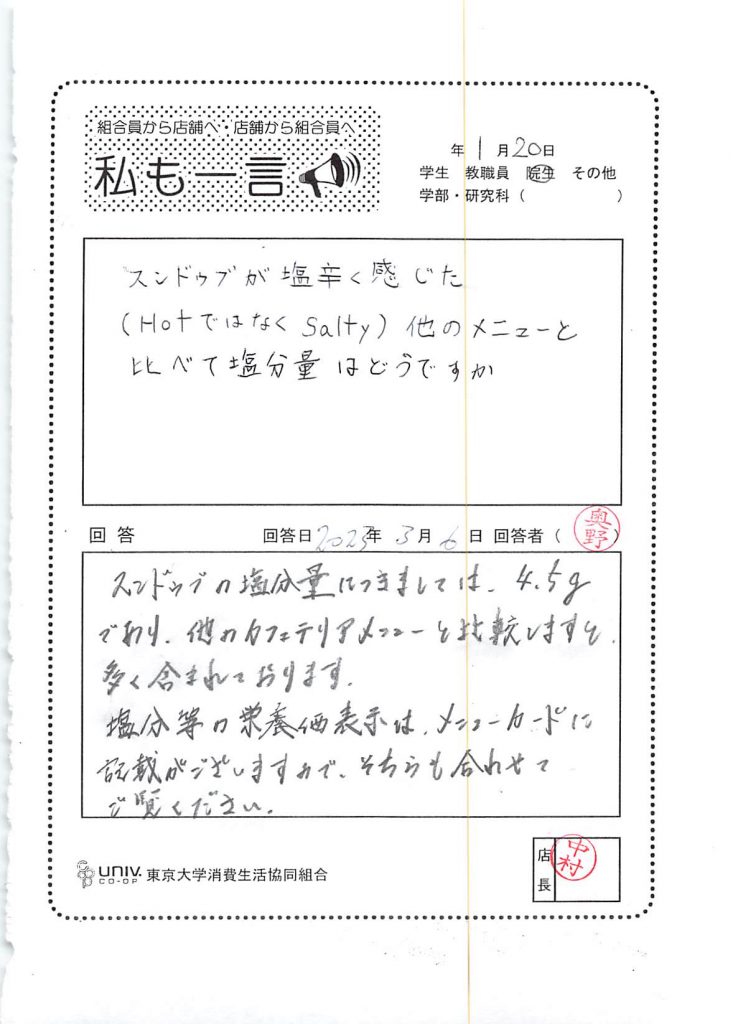 組合員から店舗へ・店舗から組合員へ
私も一言
年 1 月 20 日
学生 教職員 院生 その他
学部・研究科 ( )
スンドゥブが塩辛く感じた
(Hotではなく Salty) 他のメニューと
比べて塩分量はどうですか
回答 回答日 2023年 3月 6日 回答者 ( 奥野 )
スンドゥブの塩分量につきましては、4.5g
であり、他のカフェテリアメニューと比較しますと、
多く含まれております。
塩分等の栄養価表示は、メニューカードに
記載がございますので、そちらも合わせて
ご覧ください。
UNIV. CO-OP 東京大学消費生活協同組合
店長 中村